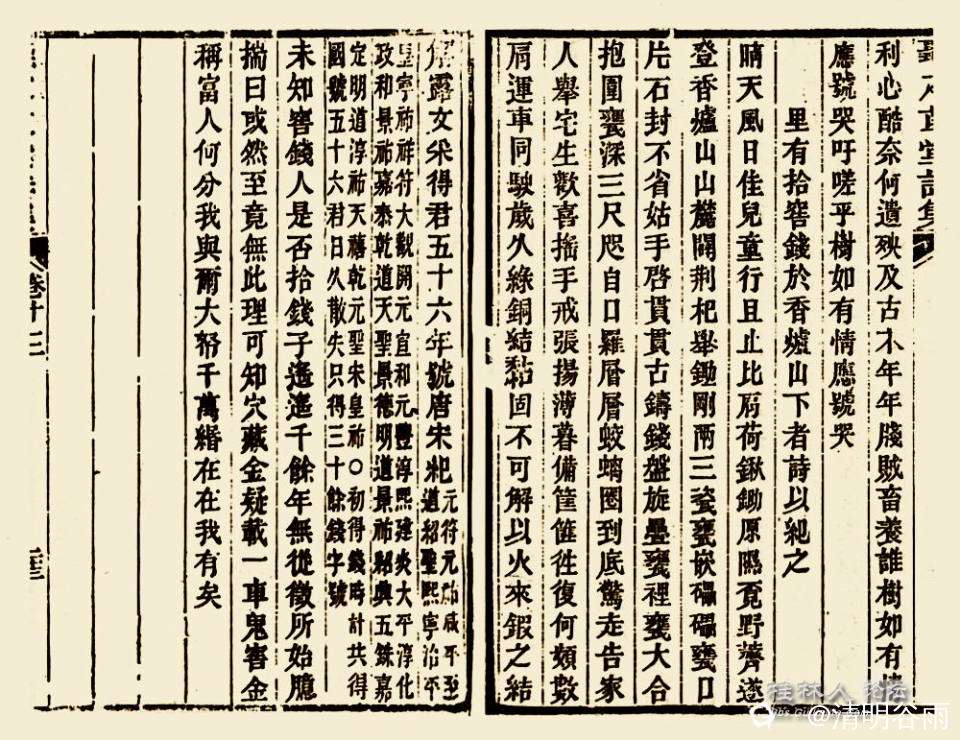 利心酷奈何遺殃及古木年年戕賊畜養誰樹如有情
應號哭吁嗟乎樹如有情應號哭
里有拾窖錢於香爐山下者詩以紀之
晴天風日佳兒童行且止比肩荷鍬鋤原隰覓野薺遂
登香爐山山麓闢荆杞舉鋤剛兩三瓷甕嵌礧礧甕口
片石封不省姑手啓貫貫古鑄錢盤旋疊甕裡甕大合
抱圍甕深三尺咫自口羅層層蛟螭圈到底驚走告家
人舉宅生歡喜搖手戒張揚薄暮備筐篚徃復何頻數
肩運車同駛歲久綠銅結黏固不可解以火來鍜之結
解露文采得君五十六年號唐宋紀
元符元祐咸平至
道紹聖熙寧治平
皇寧祐祥符大觀開元宣和元豐淳熙建炎大平淳化
政和景祐嘉泰乾道天聖景德明道景祐紹興五銖嘉
定明道淳祐天禧乾元聖宋皇祐〇初得錢時計共得
國號五十六君日久散失只得三十餘錢字號
未知窖錢人是否拾錢子遙遙千餘年無從徵所始臆
揣曰或然至竟無此理可知穴藏金疑載一車鬼窖金
稱富人何分我與爾大帑千萬緡在在我有矣
桂林人论坛
@清明谷雨